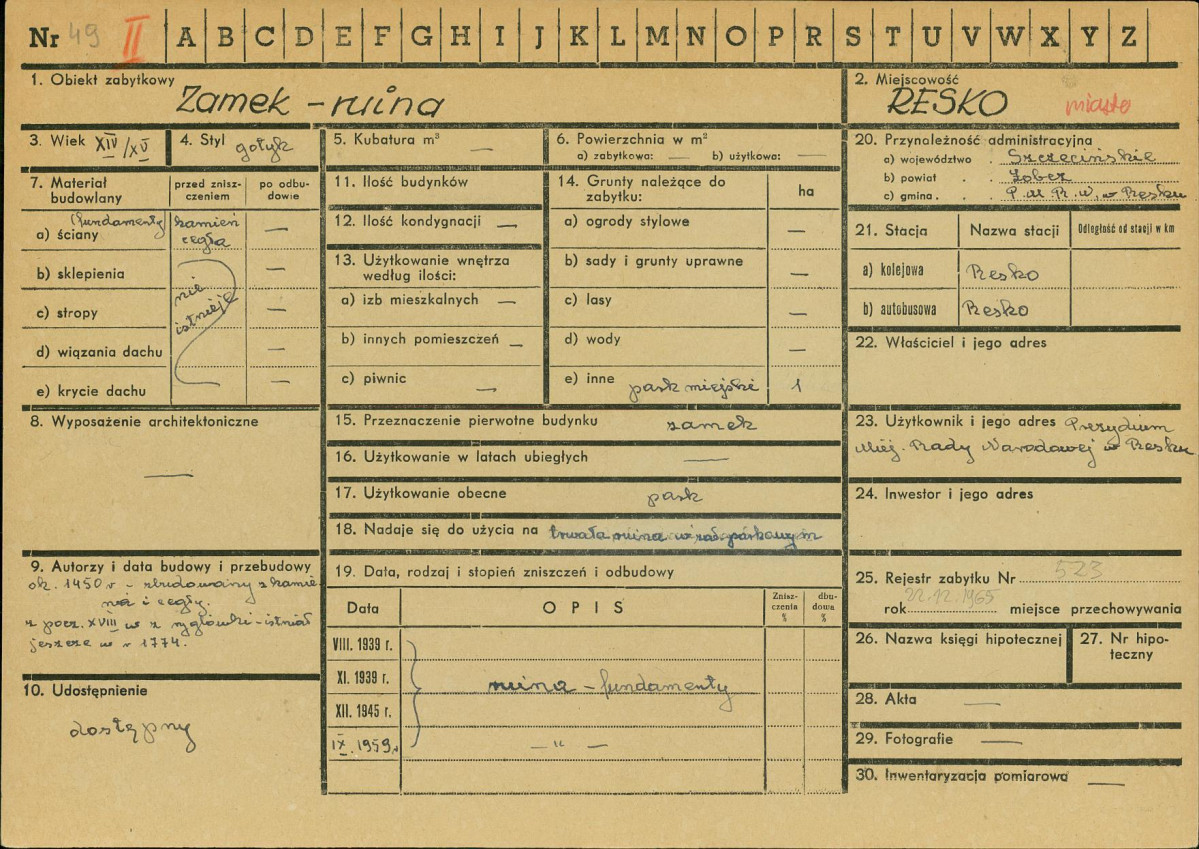 Nr 49 II A B C D E F G H I J K L M N O P R S T U V W X Y Z
1. Obiekt zabytkowy
Zamek - ruina
2. Miejscowość
RESKO miasto
3. Wiek XIV/XV
4. Styl gotyk
5. Kubatura m³ —
6. Powierzchnia w m²
a) zabytkowa: — b) użytkowa: —
7. Materiał budowlany
przed znisz-
czeniem
po odbu-
dowie
(fundamenty)
a) ściany kamień cegła —
b) sklepienia —
c) stropy —
d) wiązania dachu —
e) krycie dachu —
nie
istnieje
8. Wyposażenie architektoniczne
—
9. Autorzy i data budowy i przebudowy
ok. 1450 r - zbudowany z kamie
nia i cegły.
z pocz. XVIII w z ryglówki - istniał
jeszcze w r 1774.
10. Udostępnienie
dostępny
11. Ilość budynków
12. Ilość kondygnacji —
13. Użytkowanie wnętrza
według ilości:
a) izb mieszkalnych —
b) innych pomieszczeń —
c) piwnic —
14. Grunty należące do
zabytku:
ha
a) ogrody stylowe —
b) sady i grunty uprawne —
c) lasy —
d) wody —
e) inne park miejski 1
15. Przeznaczenie pierwotne budynku zamek
16. Użytkowanie w latach ubiegłych —
17. Użytkowanie obecne park
18. Nadaje się do użycia na trwała ruina w zał. parkowym
19. Data, rodzaj i stopień zniszczeń i odbudowy
Data
OPIS
Znisz-
czenia
%
dbu-
dowa
%
VIII. 1939 r.
XI. 1939 r. ruina - fundamenty
XII. 1945 r.
IX. 1959 r. — " —
20. Przynależność administracyjna
a) województwo . Szczecińskie
b) powiat . . Łobez
c) gmina . . P.M.R.N. w Resku
21. Stacja
Nazwa stacji
Odległość od stacji w km
a) kolejowa Resko
b) autobusowa Resko
22. Właściciel i jego adres
23. Użytkownik i jego adres Prezydium
Miej. Rady Narodowej w Resku
24. Inwestor i jego adres
25. Rejestr zabytku Nr 523
rok 22.12.1965 miejsce przechowywania
26. Nazwa księgi hipotecznej
27. Nr hipo-
teczny
28. Akta —
29. Fotografie —
30. Inwentaryzacja pomiarowa —